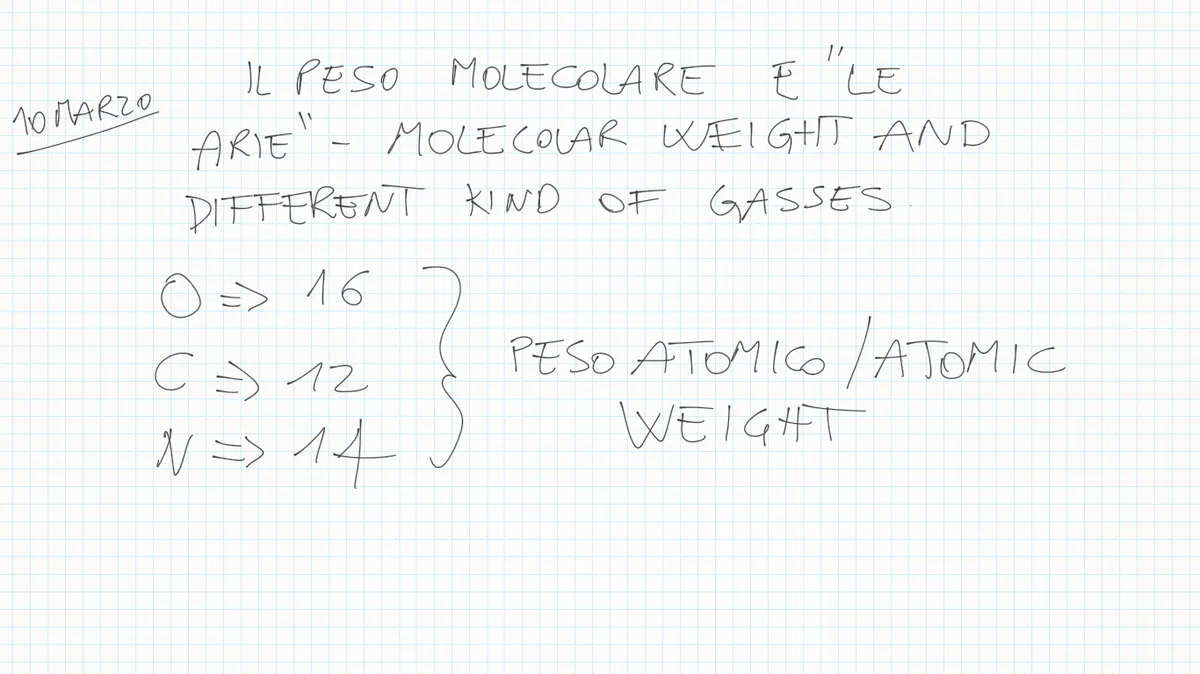 10 MARZO
IL PESO MOLECOLARE E "LE
ARIE" - MOLECOLAR WEIGHT AND
DIFFERENT KIND OF GASSES.
O => 16
C => 12
N => 14
PESO ATOMICO / ATOMIC
WEIGHT